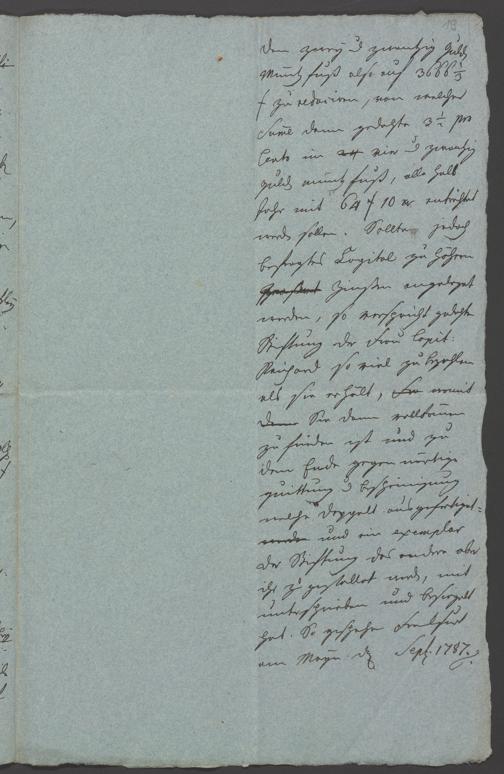 18
dem zwey und zwantzig Guld
Müntz fuß also auf 3666 2/3
f zu reduciren, von welcher
Summ dann gedachte 3 1/2 pro
Cento im vier und zwantzig
Guld müntz fuß, alle halb
Jahr mit 64 f 10 xr entrichtet
werden sollen. Sollte jedoch
besagtes Capital zu höhern
Zinßen angelegt
werden, so verspricht gedachte
Stiftung der Frau Capit:
Reichard so viel zu bezahlen
als sie erhält, womit
Sie dann vollkommen
zu frieden ist und zu
dem Ende gegenwärtige
quittung und bescheinigung
welche doppelt ausgefertiget
und ein exemplar
der Stiftung das andere aber
ihr zugestellet word, mit
unterschrieben und besiegelt
hat. So geschehen Franckfurt
am Mayn Sept. 1787.